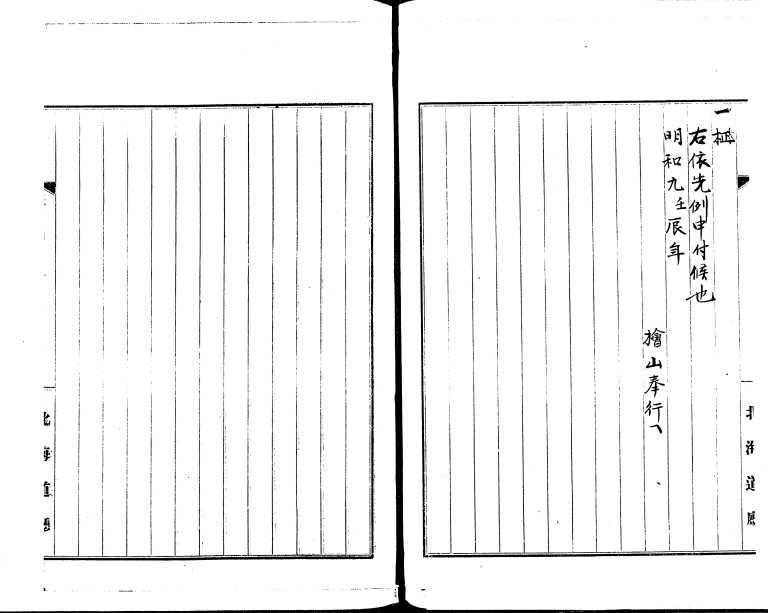 一 極
右依先例申付候也
明和九壬辰年
檜山奉行
北海道廳
北海道廳